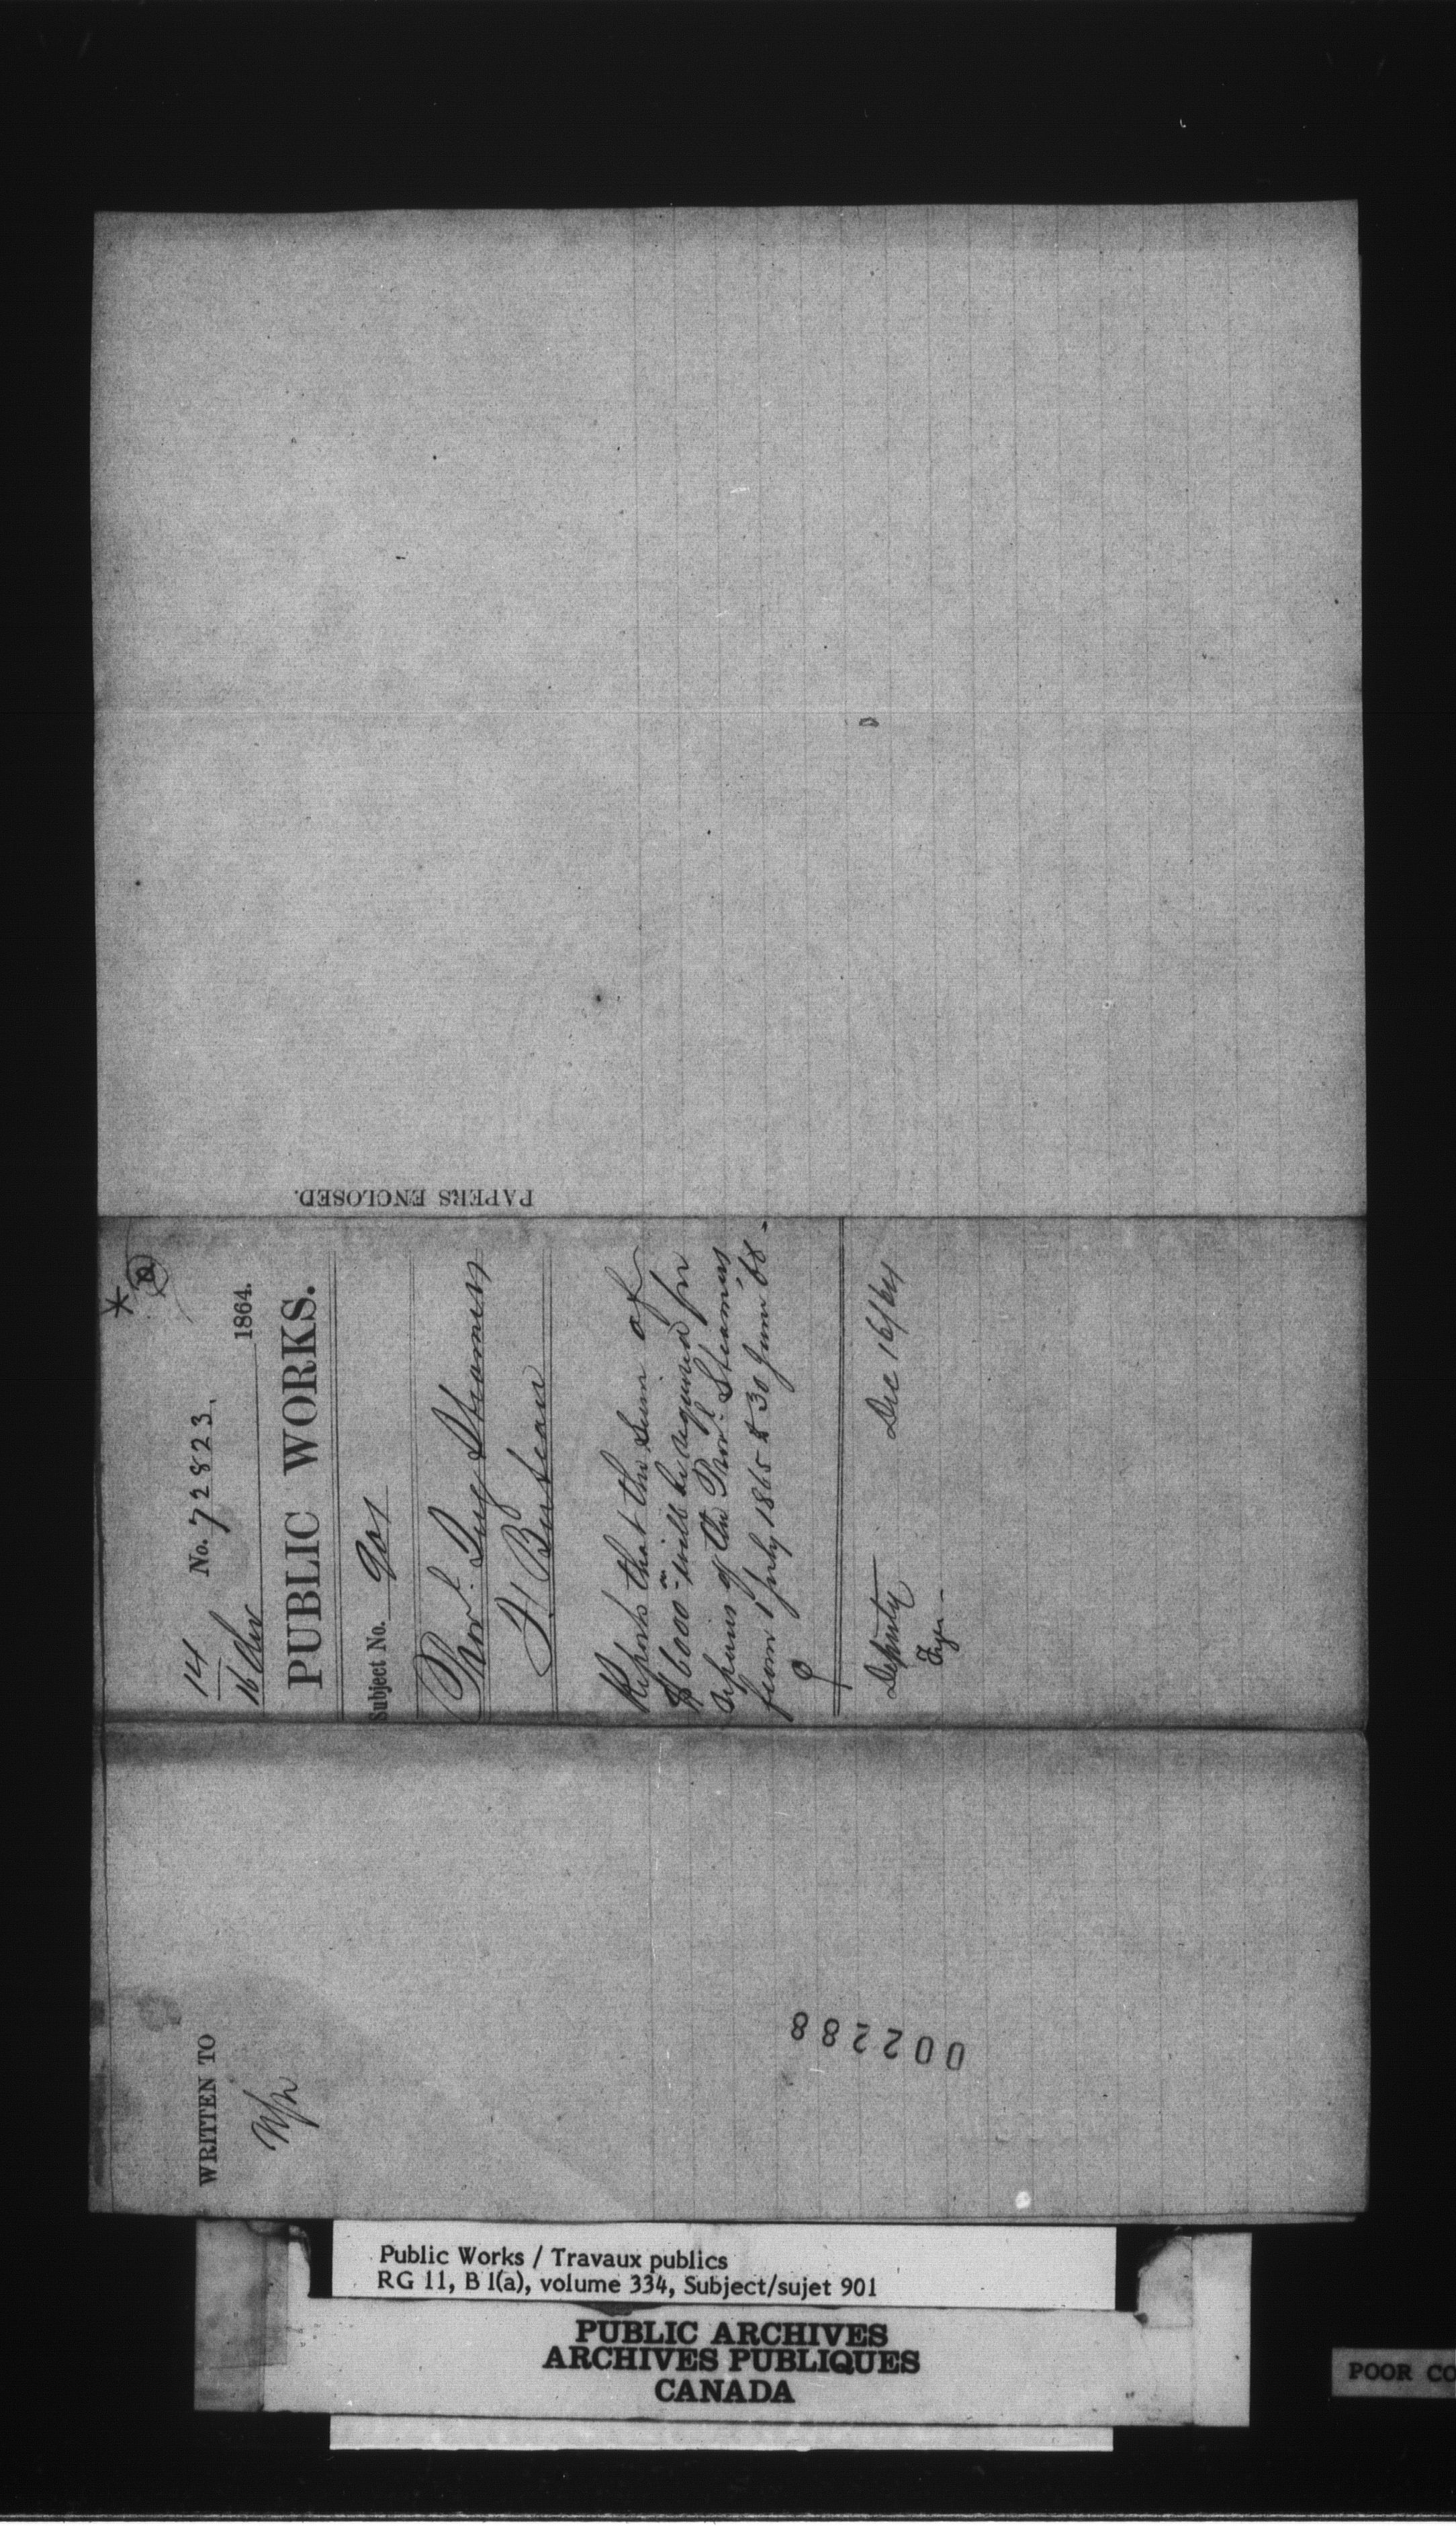 PAPERS ENCLOSED.
14
No. 72823.
16 Dec 1864.
PUBLIC WORKS.
Subject No. 901
Provl. Tug Steamers
F. Buteau
Reports that the sum of
$6000 will be required for
repairs of the Provl. Steamers
from 1 July 1865 to 30 June 66-
Deputy Dec 16/64
WRITTEN TO
002288
Public Works / Travaux publics
RG 11, B 1(a), volume 334, Subject/sujet 901
PUBLIC ARCHIVES
ARCHIVES PUBLIQUES
CANADA
POOR CO